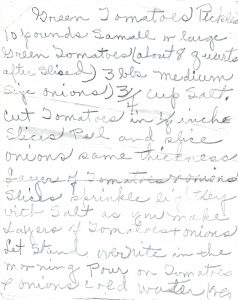 Green Tomatoes Pickles
10 pounds Samall or large
Green Tomatoes (about 8 quarts
after slised) 3 lbs medium
size onions) 3/4 cup Salt.
Cut Tomatoes in 1/4 inch
Slices Peel and slice
onions same thickness
Layers of Tomatoes onions
Slices sprinkle lightley
with Salt as you make
Layers of Tomatoes & onions
Let Stand overnite in the
morning Pour on Tomatoes
& onions cold water